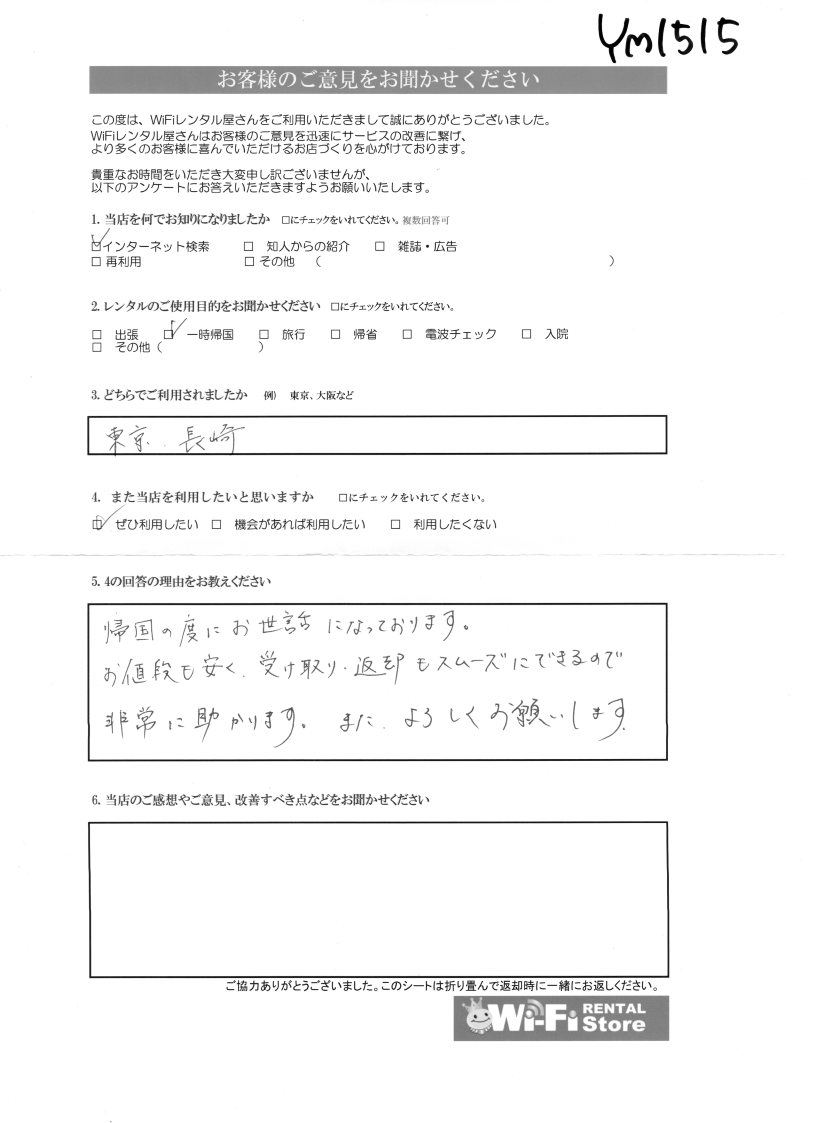 Ym1515
お客様のご意見をお聞かせください
この度は、WiFiレンタル屋さんをご利用いただきまして誠にありがとうございました。
WiFiレンタル屋さんはお客様のご意見を迅速にサービスの改善に繋げ、
より多くのお客様に喜んでいただけるお店づくりを心がけております。
貴重なお時間をいただき大変申し訳ございませんが、
以下のアンケートにお答えいただきますようお願いいたします。
1. 当店を何でお知りになりましたか □にチェックをいれてください。複数回答可
☑インターネット検索 □ 知人からの紹介 □ 雑誌・広告
□ 再利用 □ その他 ( )
2. レンタルのご使用目的をお聞かせください □にチェックをいれてください。
□ 出張 ☑ 一時帰国 □ 旅行 □ 帰省 □ 電波チェック □ 入院
□ その他 ( )
3. どちらでご利用されましたか 例) 東京、大阪など
東京、長崎
4. また当店を利用したいと思いますか □にチェックをいれてください。
☑ ぜひ利用したい □ 機会があれば利用したい □ 利用したくない
5. 4の回答の理由をお教えください
帰国の度にお世話になっております。
お値段も安く、受け取り・返却もスムーズにできるので
非常に助かります。また、よろしくお願いします。
6. 当店のご感想やご意見、改善すべき点などをお聞かせください
ご協力ありがとうございました。このシートは折り畳んで返却時に一緒にお返しください。
Wi-Fi RENTAL Store